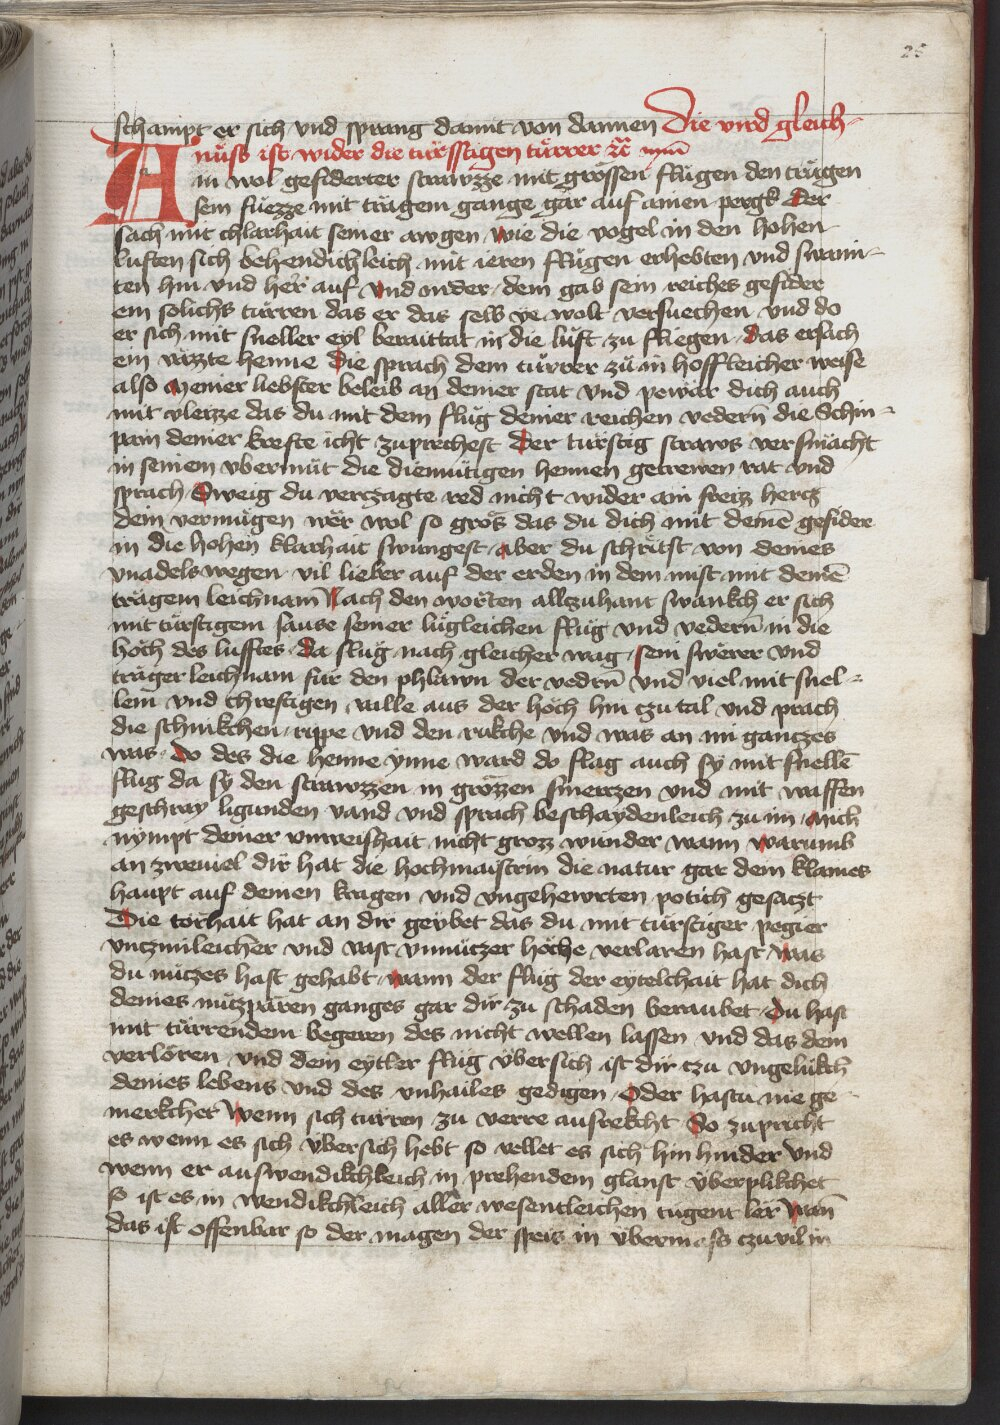 25
schampt er sich vnd sprang damit von dannen Die vird gleich-
nuss ist wider die türsstigen türrer
Ain wol gefiderter strawzze mit grössen flügen den trügen
sein füezze mit trägem gange gar auf ainen pergk Der
sach mit chlarhait seiner awgen wie die vogel in den hohen
lüften sich behendichleich mit ieren flügen erhebten vnd swaim-
ten hin vnd her auf vnd nider dem gab sein reiches gefider
ein solichs türren das er das selb ye wolt versuechen vnd do
er sich mit sneller eyl beraittat in die lüft zu fliegen das ersach
ein weizze henne Die sprach dem türrer zü in hoffleicher weise
also meiner liebster beleib an deiner stat vnd pewar dich auch
mit vleizze das du mit dem flüg deiner reichen vedern die Schin-
pain deiner krefte icht zuprechest Der türstig straws versmacht
in seinem vbermüt die diemütigen hennen getrewen rat vnd
sprach Sweig du verczagte red nicht wider ain freiz hercz
dein vermügen wër wol so gros das du dich mit deinē gefider
in die hohen klarhait swungest aber du schrätst von deines
vnadels wegen vil lieber auf der erden in dem mist mit deinē
trägem leichnam Nach den worten allczuhant swankch er sich
mit türstigem sause seiner lügleichen flüg vnd vedern in die
höch des lufftes da slüg nach gleicher wag sein swerer vnd
träger leichnam für den phlawn der vedrn vnd viel mit snel-
lem vnd chreftigen valle aus der höch hin czu tal vnd prach
die schinkchen rippe vnd den rukche vnd was an im ganczes
was Do des die henne ynne ward do flag auch sy mit snellē
flug da sy den strawzzen in grözzen smerczen vnd mit waffen
geschray ligunden vand vnd sprach beschaydenleich zu im mich
nympt deiner vnweishait nicht grozz wunder wann warumb
an zweiuel dir hat die hochmaistrin die natur gar dem klaines
haupt auf deinen kragen vnd vngehewrten potich gesaczt
Die torhait hat an dir geybet das du mit türstiger pegier
vnczimleicher vnd vast vnnüczer höche verlaren hast was
du nüczes hast gehabt wann der flüg der eytelchait hat dich
deines nüczpären ganges gar dir zu schaden beraubet Du hast
mit türrendem begeren des nicht wellen lassen vnd das dein
verloren vnd dein eytler flüg vbersich ist dir czu vngelükch
deines lebens vnd des vnhailes gedigen Oder hastu nie ge-
merkchet Wenn sich türren zu verre aufrekcht So zupricht
es wenn es sich vbersich hebt so vellet es sich hin hinder vnd
wenn er auswendikchleich in prehendem glanst vberplikchet
so ist es in wendikchleich aller wesentleichen tugent lër Wan
das ist offenbar so der magen der speis in vbermass czuvil in